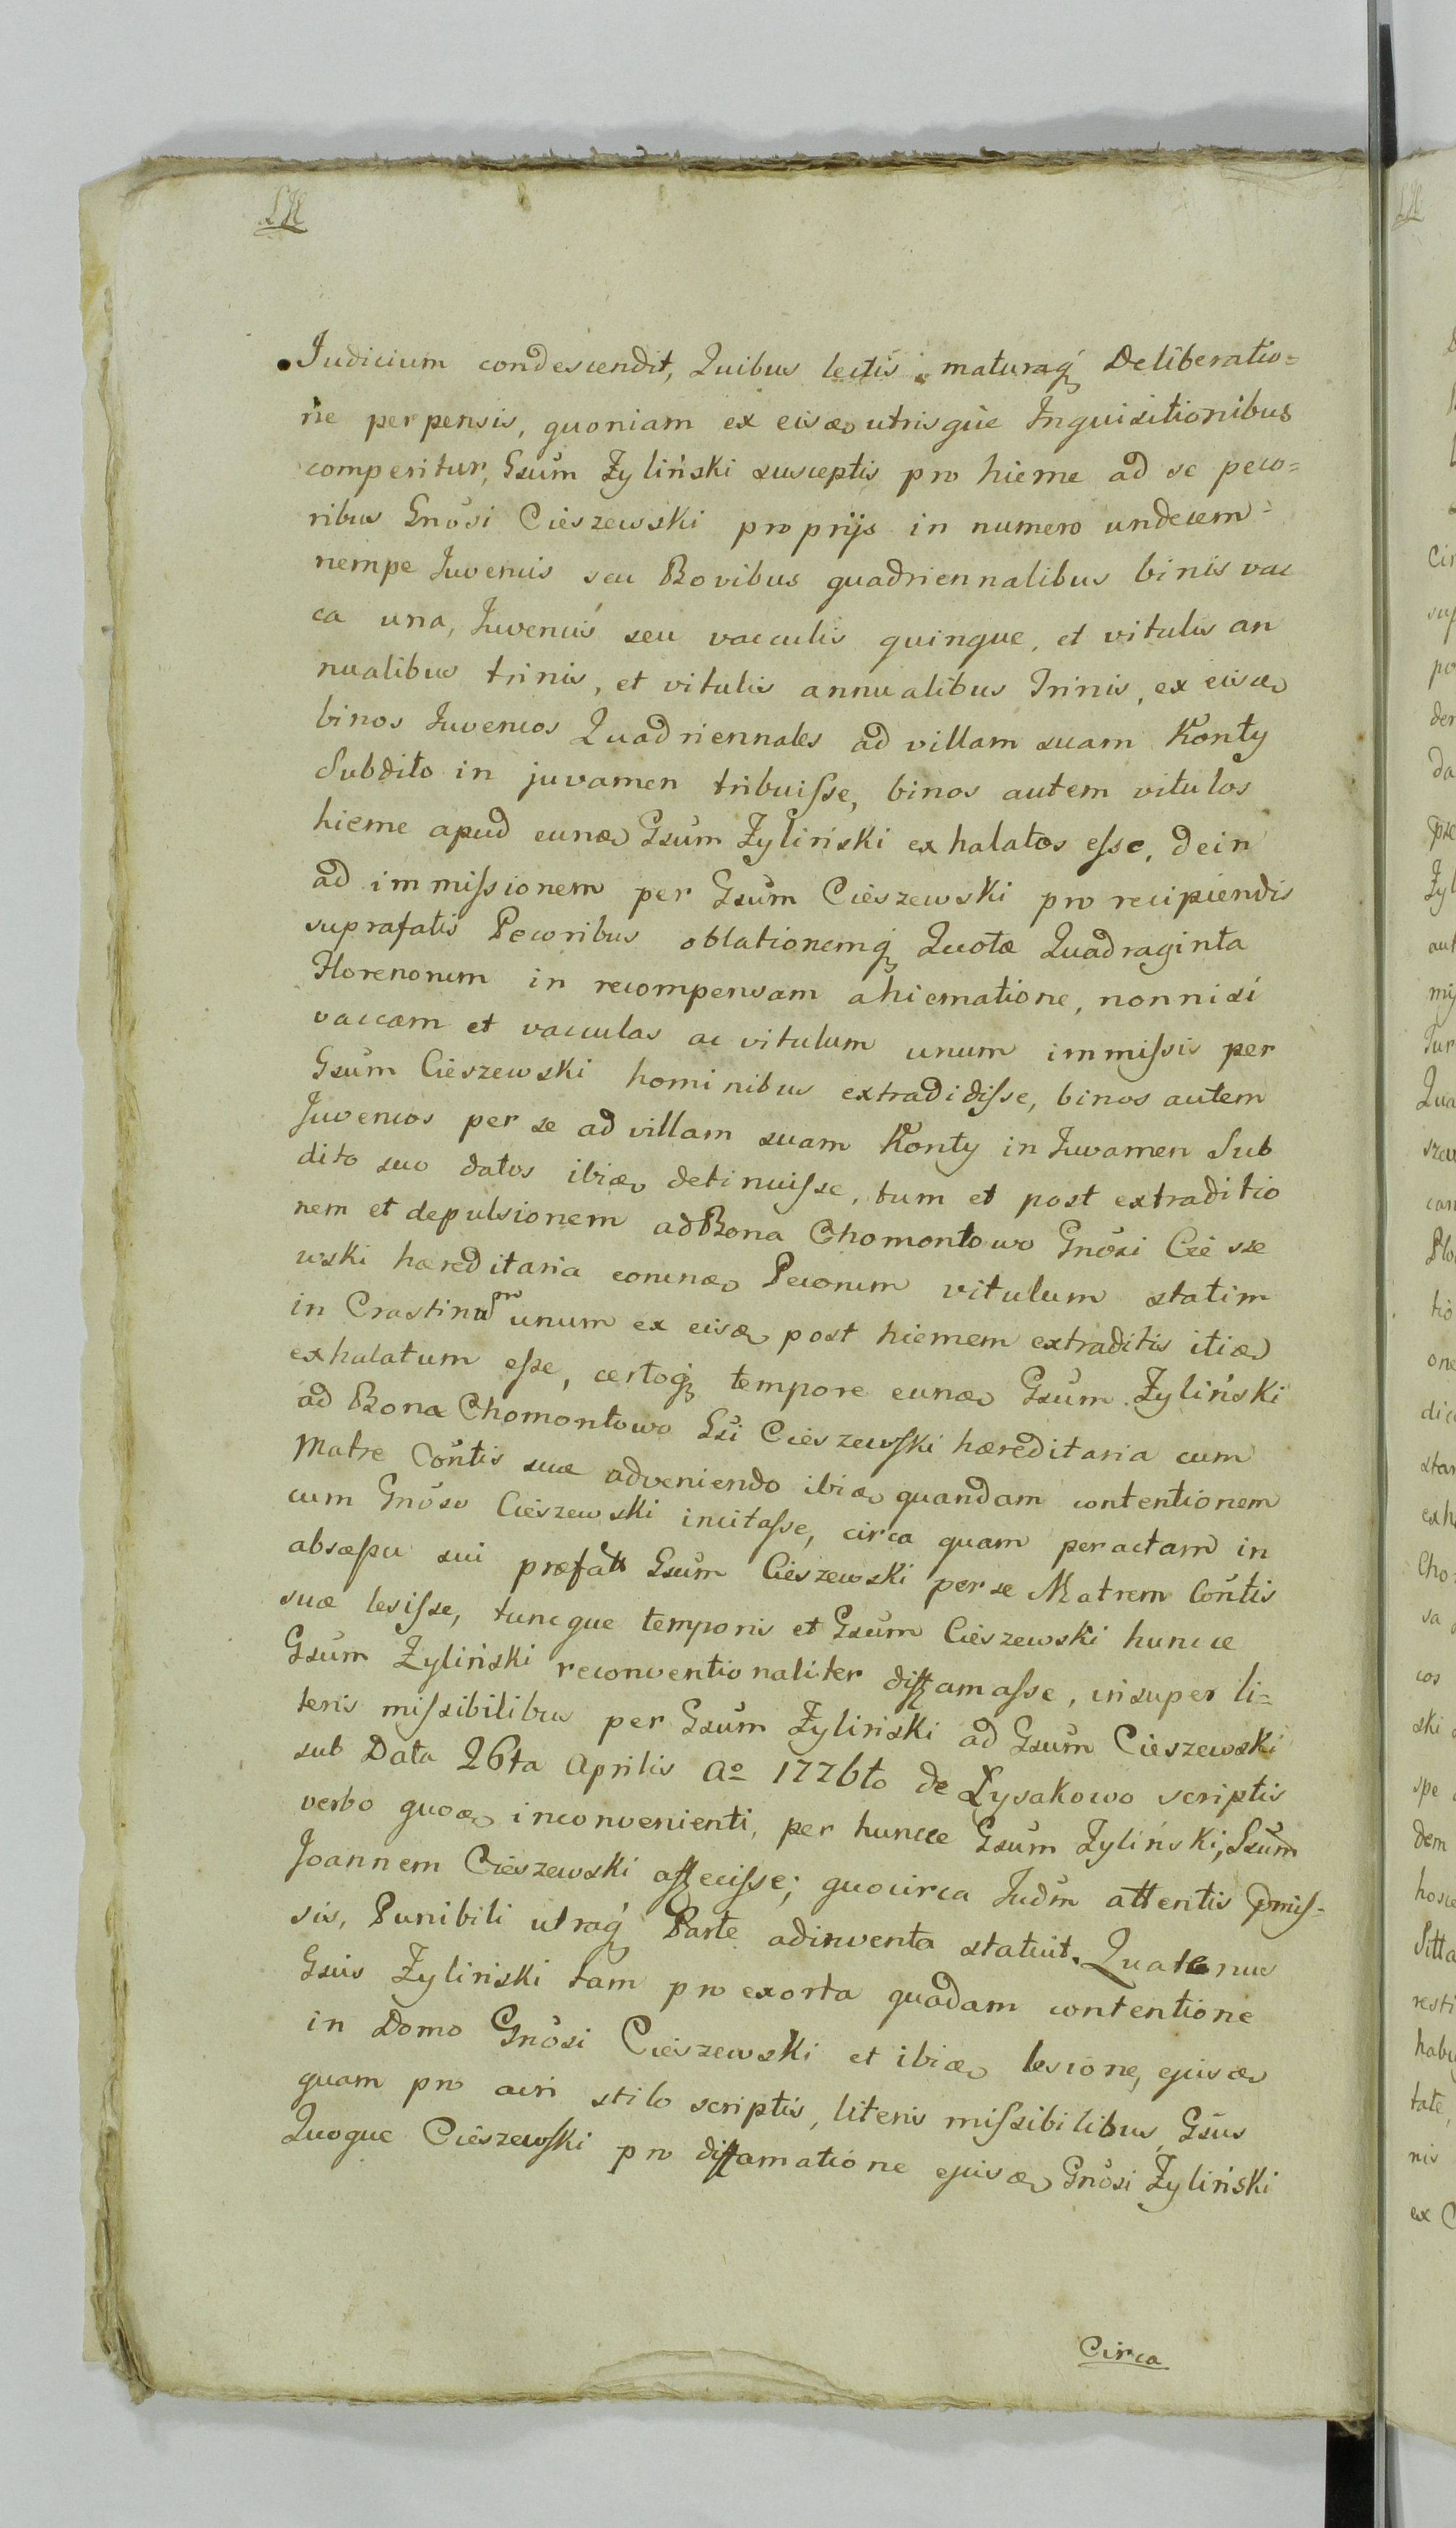 Judicium condescendit, Quibus lectis maturaq́ꝫ Deliberatio=
ne perpensis, quoniam ex eisdꝫ utrisque Inquisitionibus
comperitur, Gsum̃ Zyliński susceptis pro hieme ad se peco=
ribus Gnosi Cieszewski proprijs in numero undecem
nempe Juvencis seu Bovibus quadriennalibus binis vac
ca una, Juvencis seu vacculis quinque, et vitulis an
nualibus trinis, et vitulis annualibus Trinis, ex eisdꝫ
binos Juvencos Quadriennales ad villam suam Konty
Subdito in juvamen tribuiſse, binos autem vitulos
hieme apud eundꝫ Gsum̃ Zyliński exhalatos eſse, dein
ad immiſsionem per Gsum̃ Cieszewski pro recipiendis
suprafatis Pecoribus oblationemq́ꝫ Quotæ Quadraginta
Florenorum in recompensam ahiematione, nonnisi
vaccam et vacculas ac vitulum unum immiſsis per
Gsum̃ Cieszewski hominibus extradidiſse, binos autem
Juvencos per se ad villam suam Konty in Juvamen Sub
dito suo datos ibidꝫ detinuiſse, tum et post extraditio
nem et depulsionem ad Bona Chomontowo Gnosi Ciesze
wski hæreditaria eorundꝫ Pecorum vitulum statim
in Crastinum unum ex eisdꝫ post hiemem extraditis itidꝫ
exhalatum eſse, certoq́ꝫ tempore eundꝫ Gsum̃ Zyliński
ad Bona Chomontowo Gsi Cieszewſki hæreditaria cum
Matre Con̄tis suæ adveniendo ibidꝫ quandam contentionem
cum Gnoso Cieszewski incitaſse, circa quam peractam in
absæpu sui præfatt Gsum̃ Cieszewski per se Matrem Con̄tis
suæ lesiſse, tuncque temporis et Gsum̃ Cieszewski huncce
Gsum̃ Zyliński reconventionaliter diffamaſse, insuper li=
teris miſsibilibus per Gsum̃ Zyliński ad Gsum̃ Cieszewski
sub Data 26ta Aprilis Aº 1776to de Lysakowo scriptis
verbo quodꝫ inconvenienti, per huncce Gsum̃ Zyliński, Gsum̃
Joannem Cieszewski affeciſse; quocirca Judm̃ attentis p̄miſ=
sis, Punibili utraq́ Parte adinventa statuit. Quatenus
Gsus Zyliński tam pro exorta quadam contentione
in Domo Gnosi Cieszewski et ibidꝫ lesione, ejusdꝫ
quam pro acri stilo scriptis, literis miſsibilibus, Gsus
Quoque Cieszewſki pro diffamatione ejusdꝫ Gnosi Zyliński
Circa